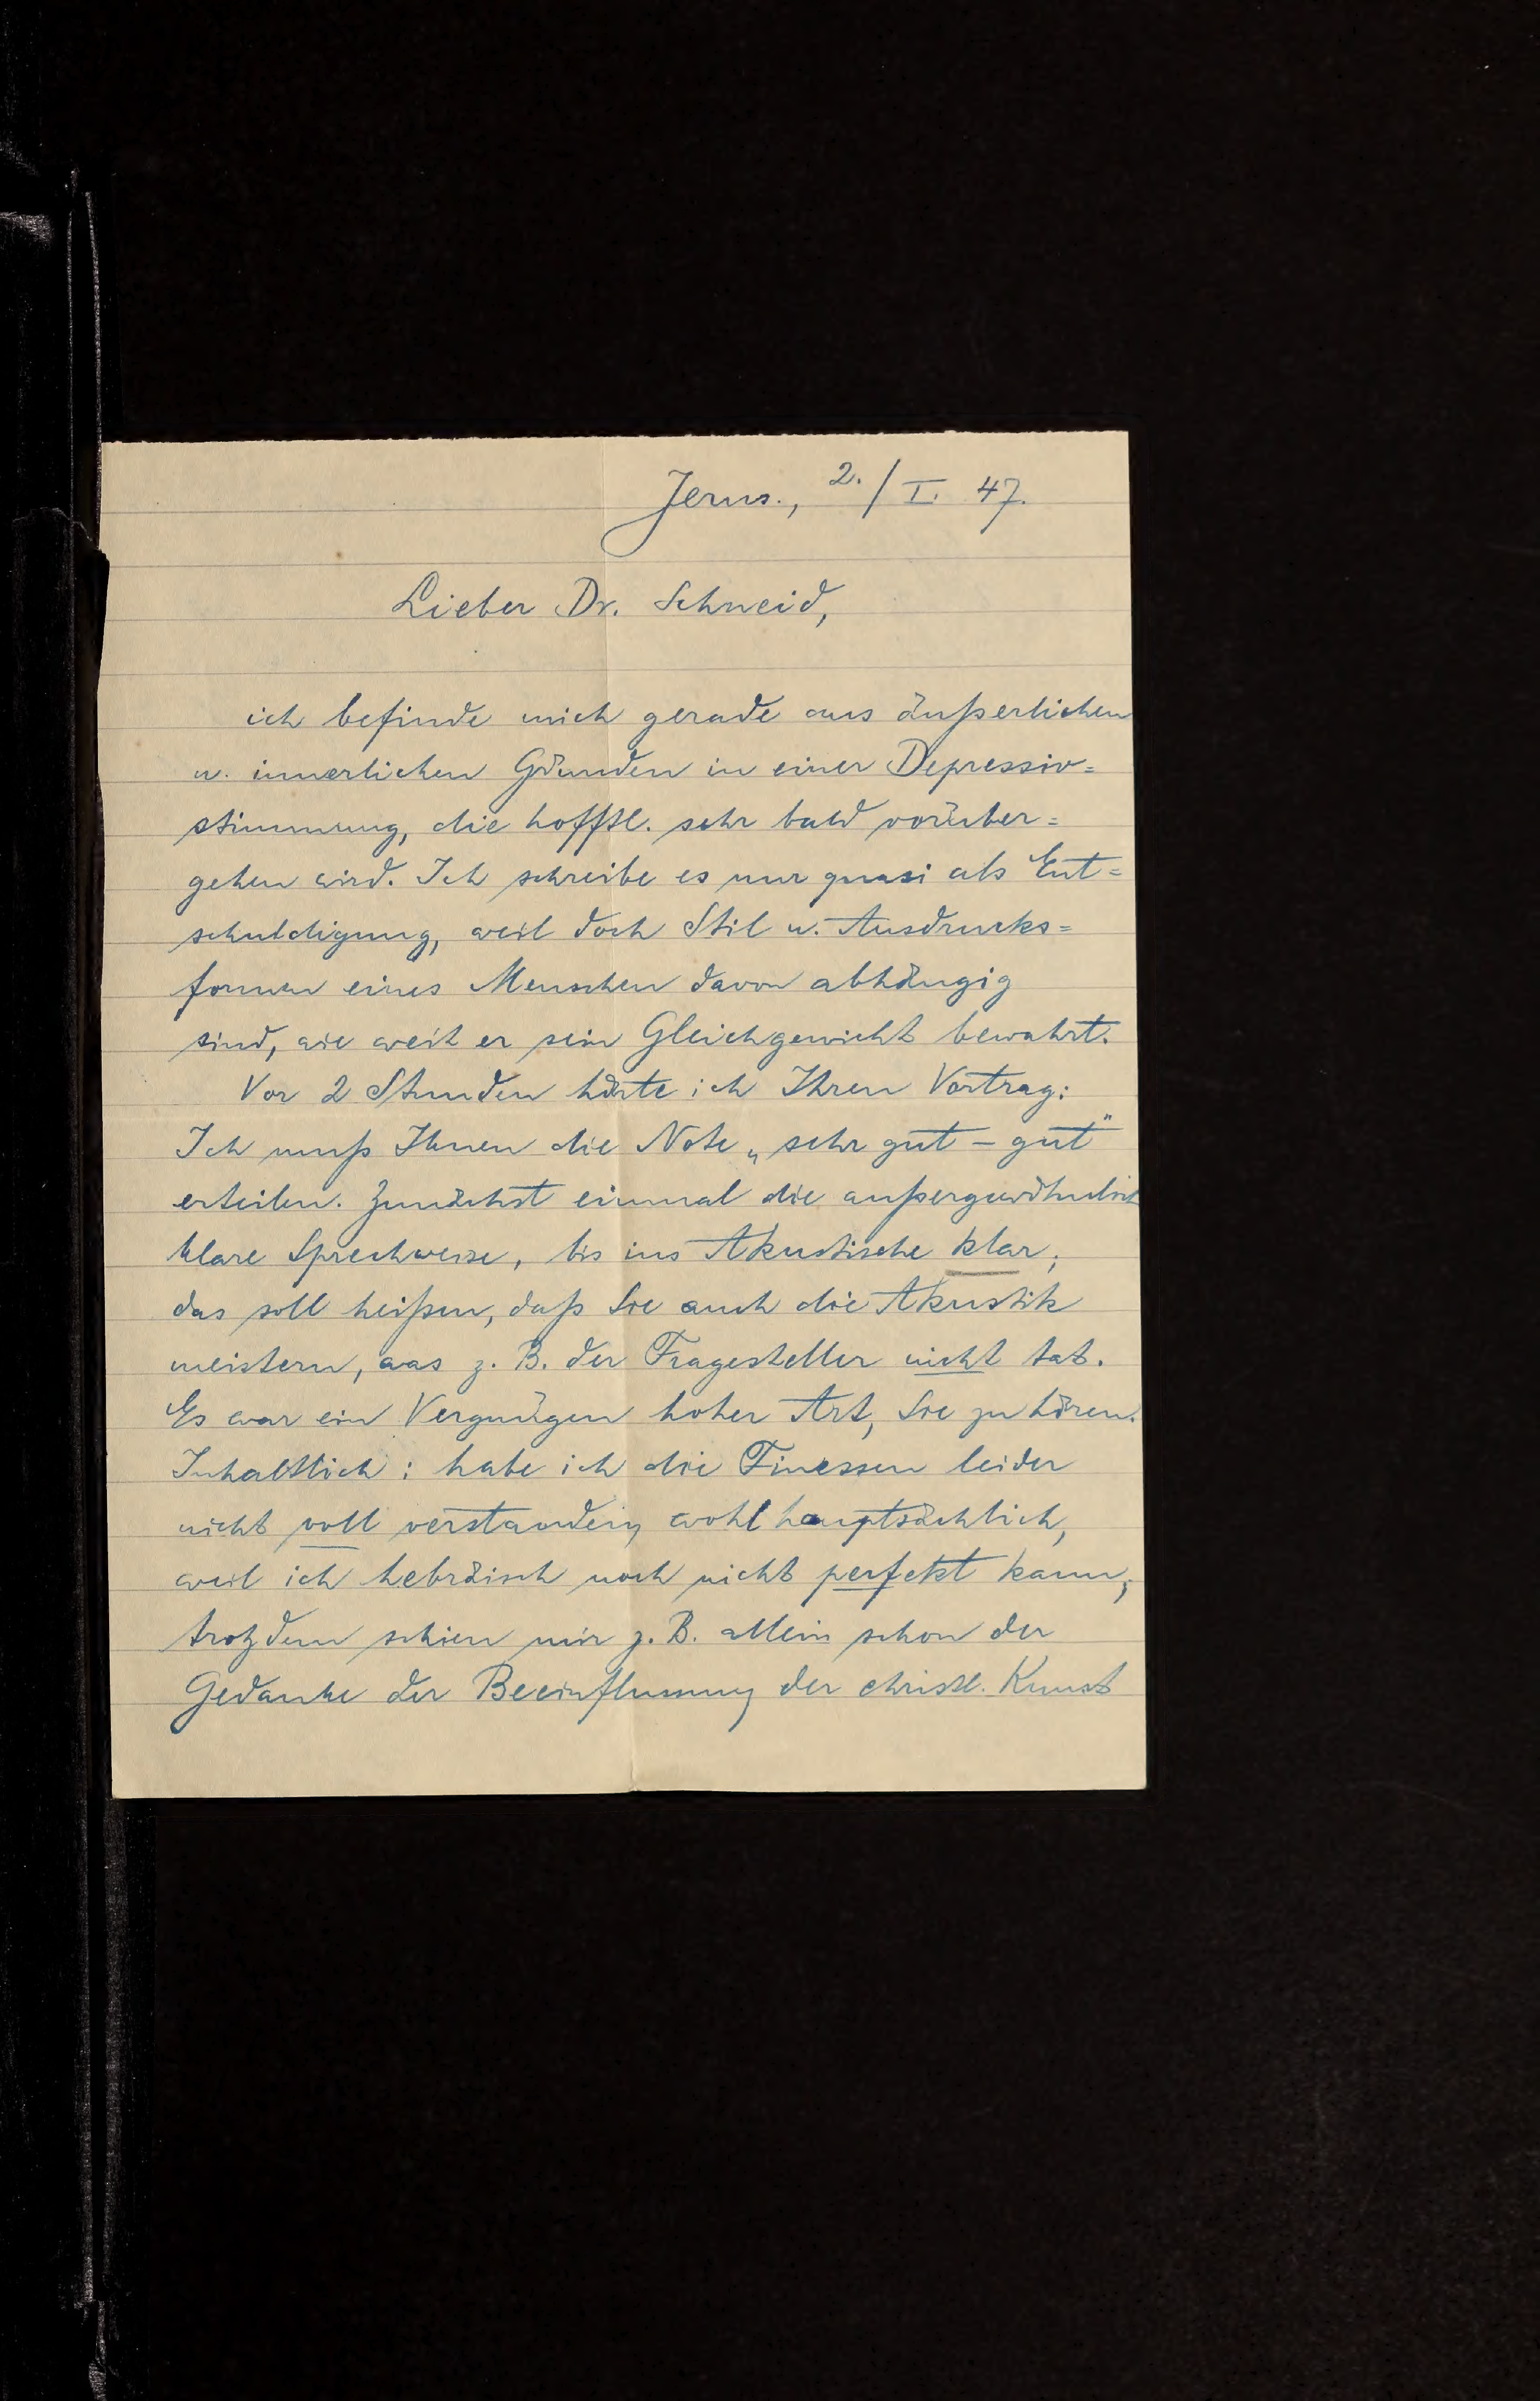 Jerus., 2./I. 47.
Lieber Dr. Schneid,
ich befinde mich gerade aus äußerlichen
u. innerlichen Gründen in einer Depressiv=
stimmung, die hofftl. sehr bald vorüber=
gehen wird. Ich schreibe es nur quasi als Ent=
schuldigung, weil doch Stil u. Ausdrucks=
formen eines Menschen davon abhängig
sind, wie weit er sein Gleichgewicht bewahrt.
Vor 2 Stunden hörte ich Ihren Vortrag:
Ich muß Ihnen die Note „sehr gut – gut"
erteilen. Zunächst einmal die außergewöhnlich
klare Sprechweise, bis ins Akustische klar;
das soll heißen, daß Sie auch die Akustik
meistern, was z. B. der Fragesteller nicht tat.
Es war ein Vergnügen hoher Art, Sie zu hören.
Inhaltlich: habe ich die Finessen leider
nicht voll verstanden, wohl hauptsächlich,
weil ich hebräisch noch nicht perfekt kann;
trotzdem schien mir z. B. allein schon der
Gedanke der Beeinflussung der christl. Kunst